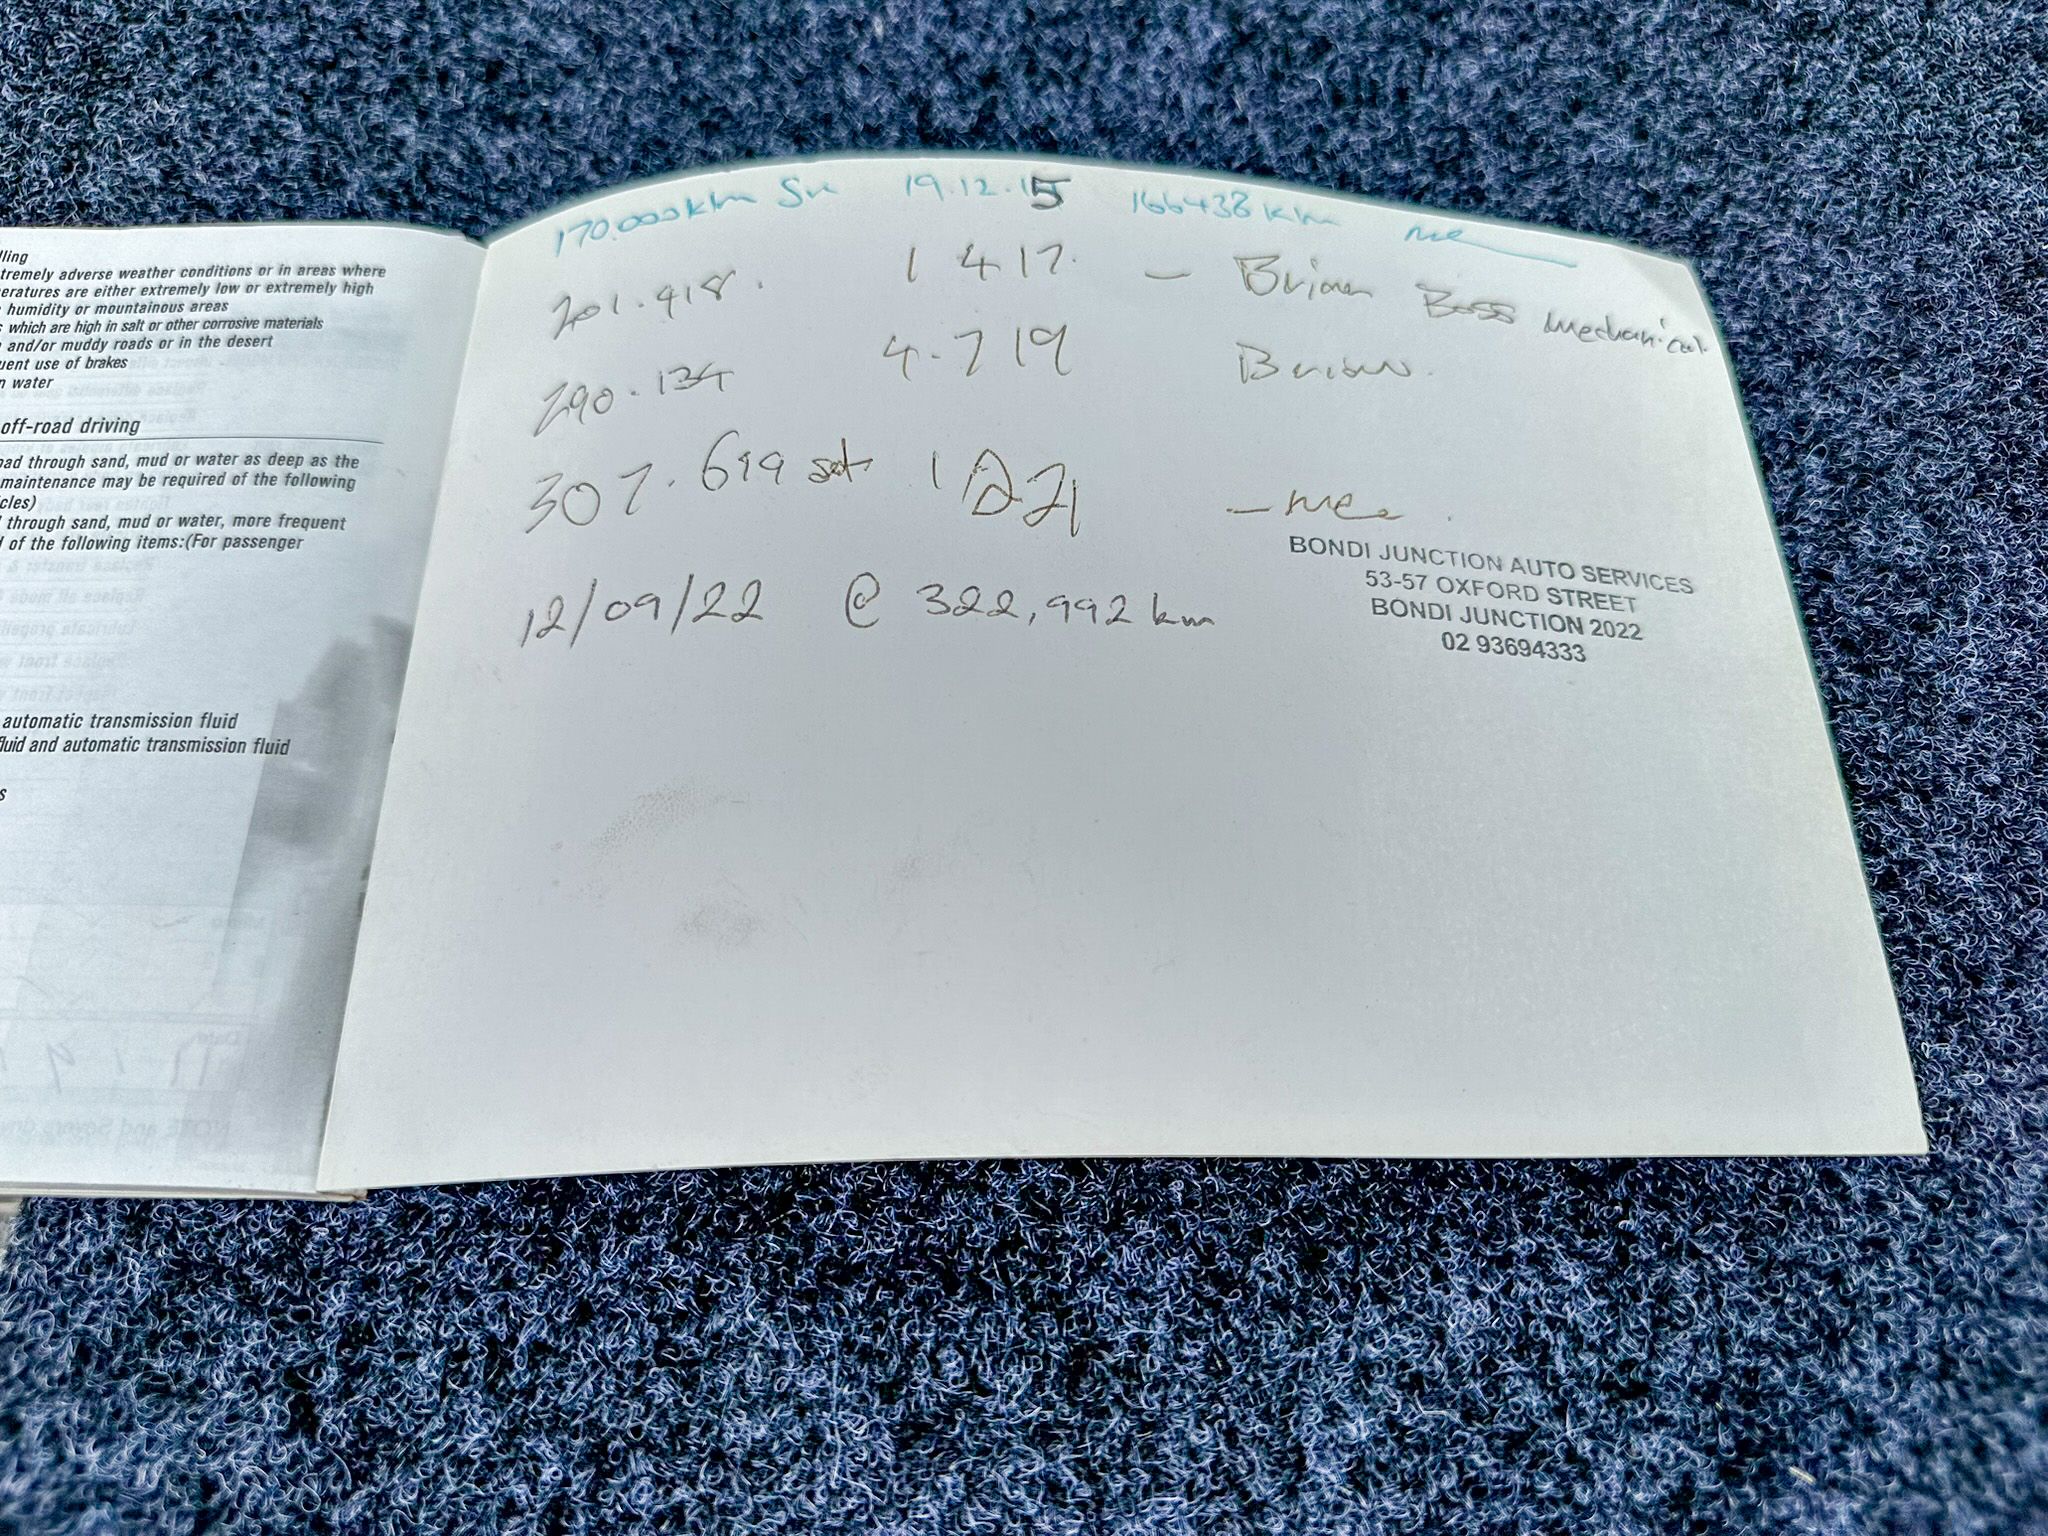 lling
tremely adverse weather conditions or in areas where
eratures are either extremely low or extremely high
humidity or mountainous areas
s which are high in salt or other corrosive materials
and/or muddy roads or in the desert
uent use of brakes
n water
off-road driving
oad through sand, mud or water as deep as the
maintenance may be required of the following
cles)
l through sand, mud or water, more frequent
d of the following items:(For passenger
automatic transmission fluid
fluid and automatic transmission fluid
s
170.000klm 19.12.15 166438 klm me
201.418. 1 4 17. - Brian Boss Mechanical.
290.134 4.7 19 Brian.
307.619 1 2 21 - me
12/09/22 @ 322,992 km
BONDI JUNCTION AUTO SERVICES
53-57 OXFORD STREET
BONDI JUNCTION 2022
02 93694333